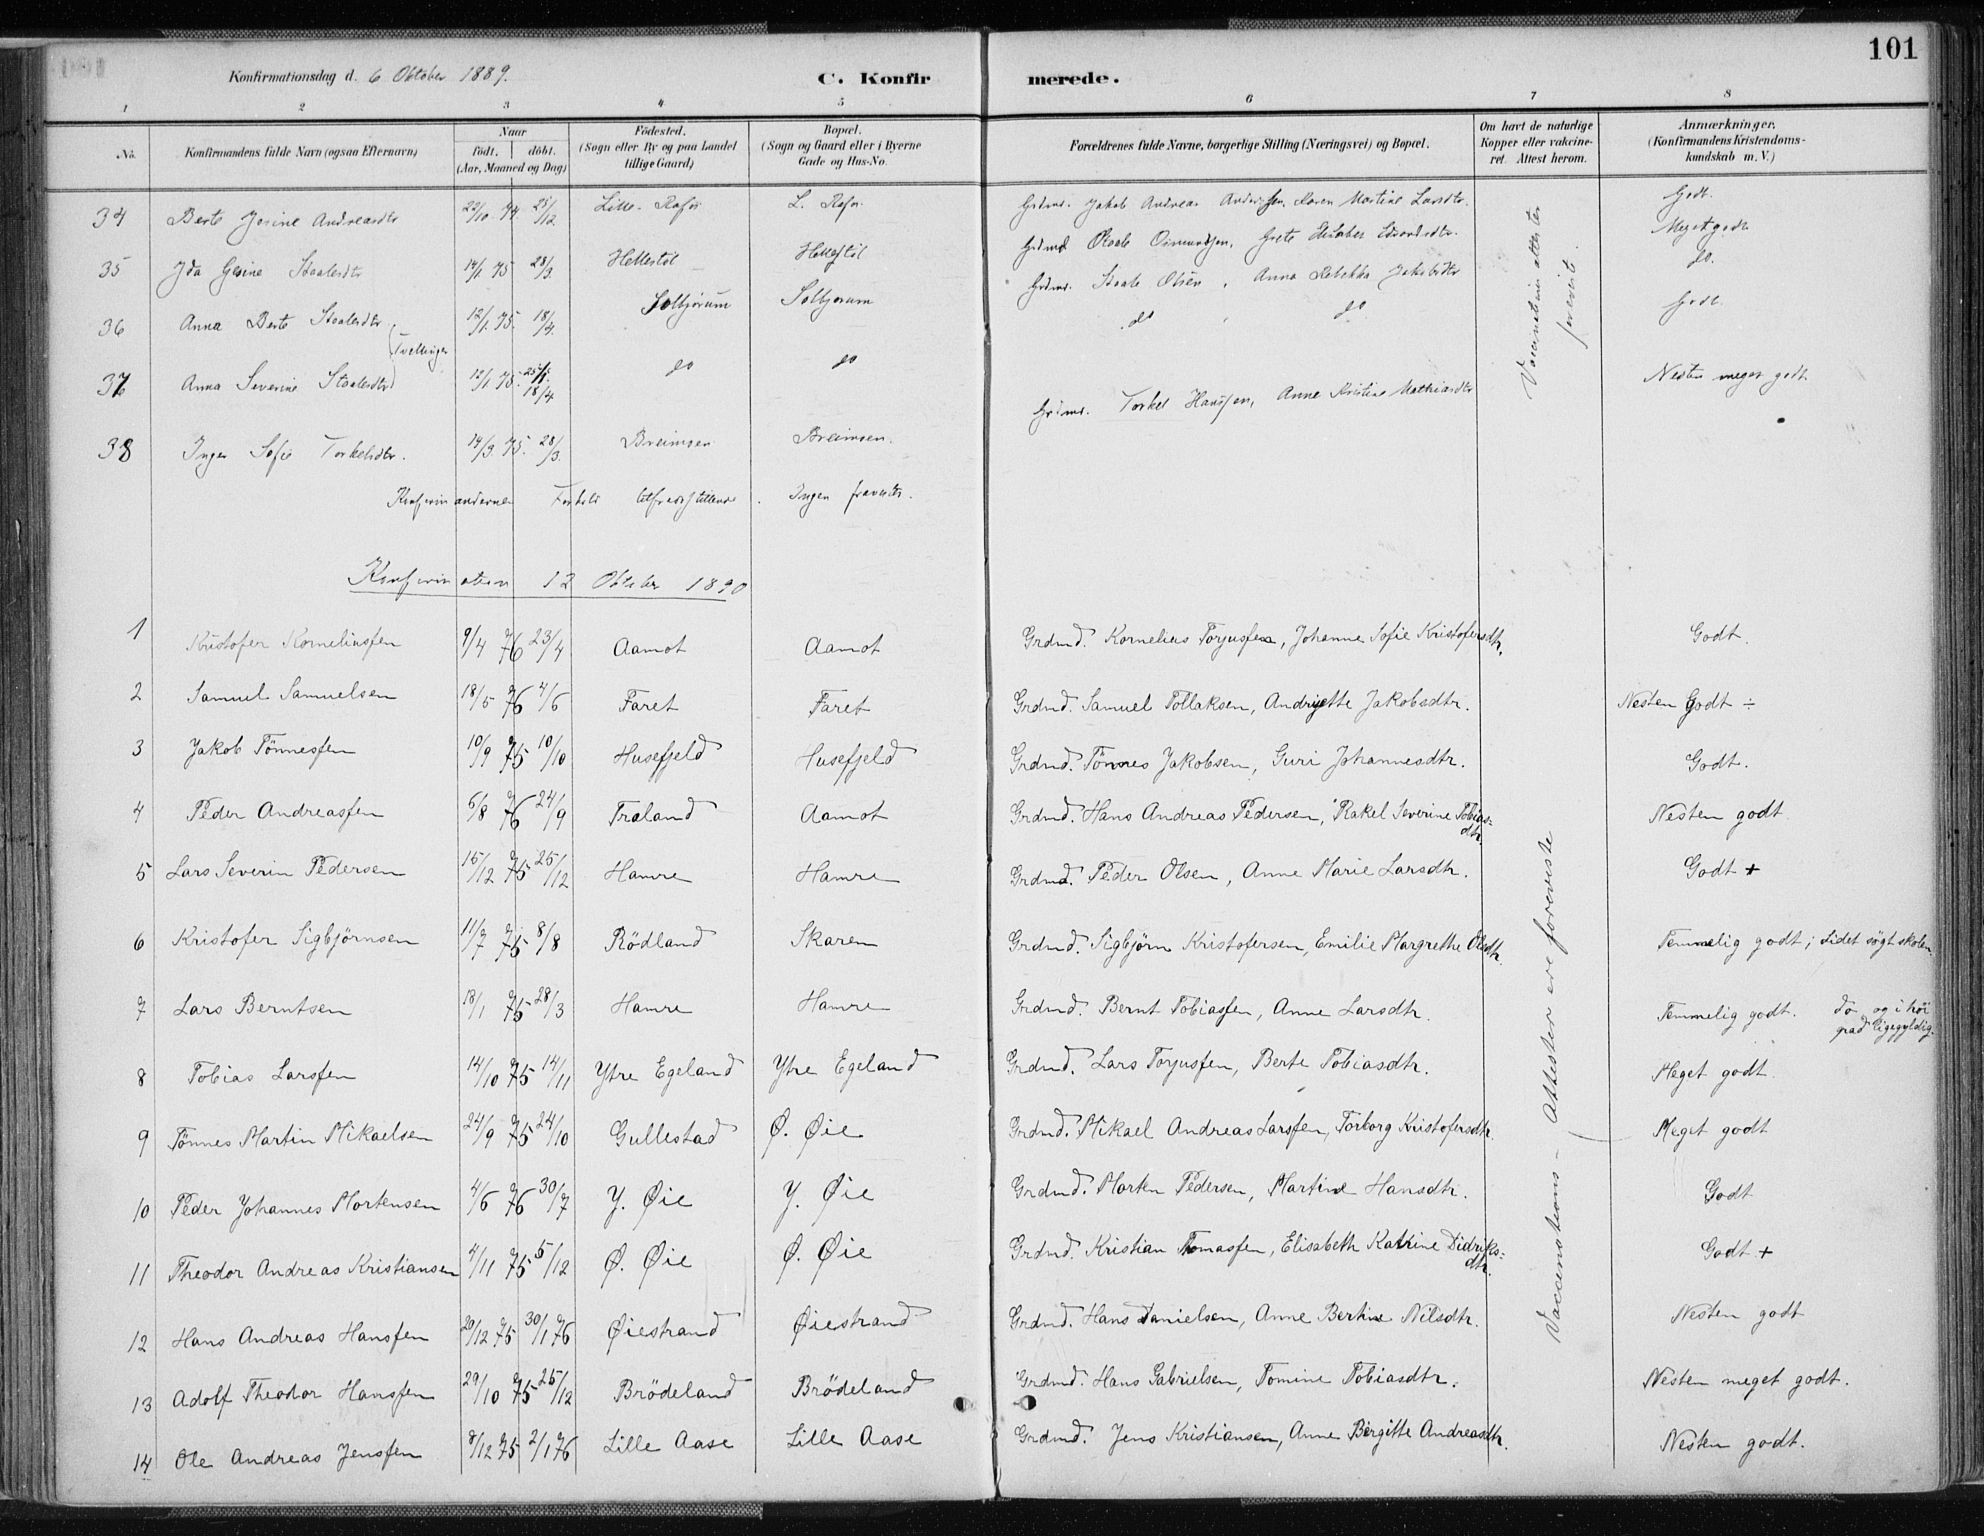 101
Konfirmationsdag d. 6 Oktober 1889. C. Konfir merede.
1 2 3 4 5 6 7 8
No. Konfirmandens fulde Navn (ogsaa Efternavn) Naar födt. döbt. (Aar, Maaned og Dag) Födested. (Sogn eller By og paa Landet tillige Gaard) Bopæl. (Sogn og Gaard eller i Byerne Gade og Hus-No. Forældrenes fulde Navne, borgerlige Stilling (Næringsvei) og Bopæl. Om havt de naturlige Kopper eller vakcineret. Attest herom. Anmærkninger. (Konfirmandens Kristendomskundskab m. V.)
34 Berte Josine Andreasdtr 22/10 74 25/12 Lille L. Grdmd. Jakob Andreas Karen Martine Larsdtr. Godt.
35 Ida Gesine Staalesdtr 14/1 75 28/3 Hellestöl Hellestöl Grdmd. Grete Meget godt
36 Anna Berte Staalesdtr 12/1 75. 18/4. Solbjørum Solbjorum Grdmd. Staale Olsen, Anna Rebekka Jakobsdtr do.
Tvillinger
37 Anna Severine Staalesdtr 12/1 75. 18/4 do do do do Godt.
38 Inger Sofie Torkelsdtr. 14/3 75. 28/3. Breimoen Breimoen. Grdmd. Torkel Hanssen, Anne Kristine Mathiasdtr Nesten meget godt
Konfirmandernes Forhold tilfredsstillende. Ingen
Konfirmation 12 Oktober 1890
1 Kristofer Korneliussen 9/4 76 23/4 Aamot Aamot Grdmd. Kornelius Torjussen, Johanne Sofie Kristofersdtr. Godt.
2 Samuel Samuelsen 18/5 76 4/6 Faret Faret Grdmd. Samuel Tollaksen, Andrijette Jakobsdtr. Nesten Godt ÷
3 Jakob Tönnessen 10/9 75 10/10 Husefjeld Husefjeld Grdmd. Tönnes Jakobsen, Guri Johannesdtr. Godt.
4 Peder Andreassen 6/8 76 24/9 Traland Aamot Grdmd. Hans Andreas Pedersen, Rakel Severine Tobiasdtr. Nesten godt
5 Lars Severin Pedersen 15/12 75 25/12 Hamre Hamre Grdmd. Peder Olsen, Anne Marie Larsdtr. Godt +
6 Kristofer Sigbjörnsen 11/7 75 8/8 Rödland Skaren Grdmd. Sigbjörn Kristofersen, Emilie Margrethe Olsdtr. Temmelig godt; Lidet sögt skolen.
7 Lars Berntsen 18/1 75 28/3 Hamre Hamre Grdmd. Bernt Tobiassen, Anne Larsdtr. Temmelig godt. do og i höi grad ligegyldig.
8 Tobias Larssen 14/10 75 14/11 Ytre Egeland Ytre Egeland Grdmd. Lars Torjussen, Berte Tobiasdtr. Meget godt.
9 Tönnes Martin Mikaelsen 24/9 75 24/10 Gullestad Ø. Øie Grdmd. Mikael Andreas Larssen, Torborg Kristofersdtr. Meget godt
10 Peder Johannes Mortensen 4/6 76 30/7 Y. Øie Y. Øie Grdmd. Morten Pedersen, Martine Hansdtr. Godt
11 Theodor Andreas Kristiansen 4/11 75 5/12 Ø. Øie Ø. Øie Grdmd. Kristian Tomassen, Elisabeth Katrine Didriksdtr. Godt +
12 Hans Andreas Hanssen 20/12 75 30/1 76 Øiestrand Øiestrand Grdmd. Hans Danielsen, Anne Bertine Nilsdtr. Nesten godt
13 Adolf Theodor Hanssen 29/10 75 25/12 Brödeland Brödeland Grdmd. Hans Gabrielsen, Tomine Tobiasdtr. Nesten meget godt.
14 Ole Andreas Jenssen 8/12 75 2/1 76 Lille Aase Lille Aase Grdmd. Jens Kristiansen, Anne Birgitte Andreasdtr. Nesten godt.
Vaccinations-Attester ere foreviste